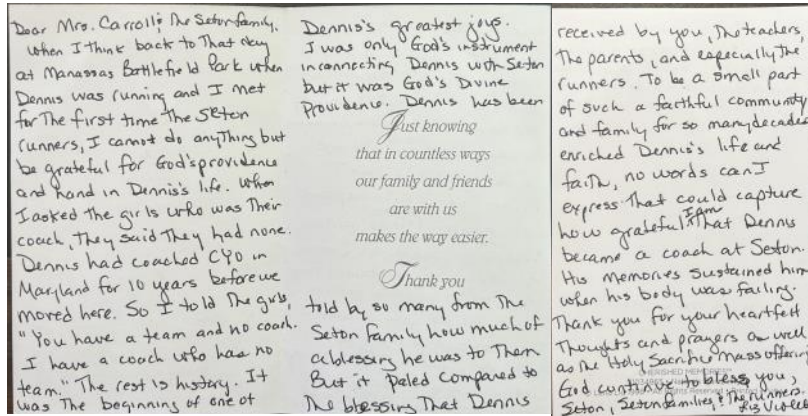 Dear Mrs. Carroll & The Seton family,
When I think back to That day
at Manassas Battlefield Park when
Dennis was running and I met
for The first time The Seton
runners, I cannot do anything but
be grateful for God's providence
and hand in Dennis's life. When
I asked the girls who was Their
coach, They said They had none.
Dennis had coached CYO in
Maryland for 10 years before we
moved here. So I told The girls,
"You have a team and no coach.
I have a coach who has no
team." The rest is history. It
was The beginning of one of
Dennis's greatest joys.
I was only God's instrument
in connecting Dennis with Seton
but it was God's Divine
Providence. Dennis has been
Just knowing
that in countless ways
our family and friends
are with us
makes the way easier.
Thank you
told by so many from The
Seton family how much of
a blessing he was to Them
But it paled compared to
The blessing That Dennis
received by you, The teachers,
The parents, and especially The
runners. To be a small part
of such a faithful community
and family for so many decades
enriched Dennis's life and
faith, no words can I
express That could capture
how grateful I am That Dennis
became a coach at Seton.
His memories sustained him
when his body was failing.
Thank you for your heartfelt
Thoughts and prayers as well
as The Holy Sacrifice Mass offering
CHERISHED MEMORIES
God continue to bless you,
Seton, Seton families & The runners,